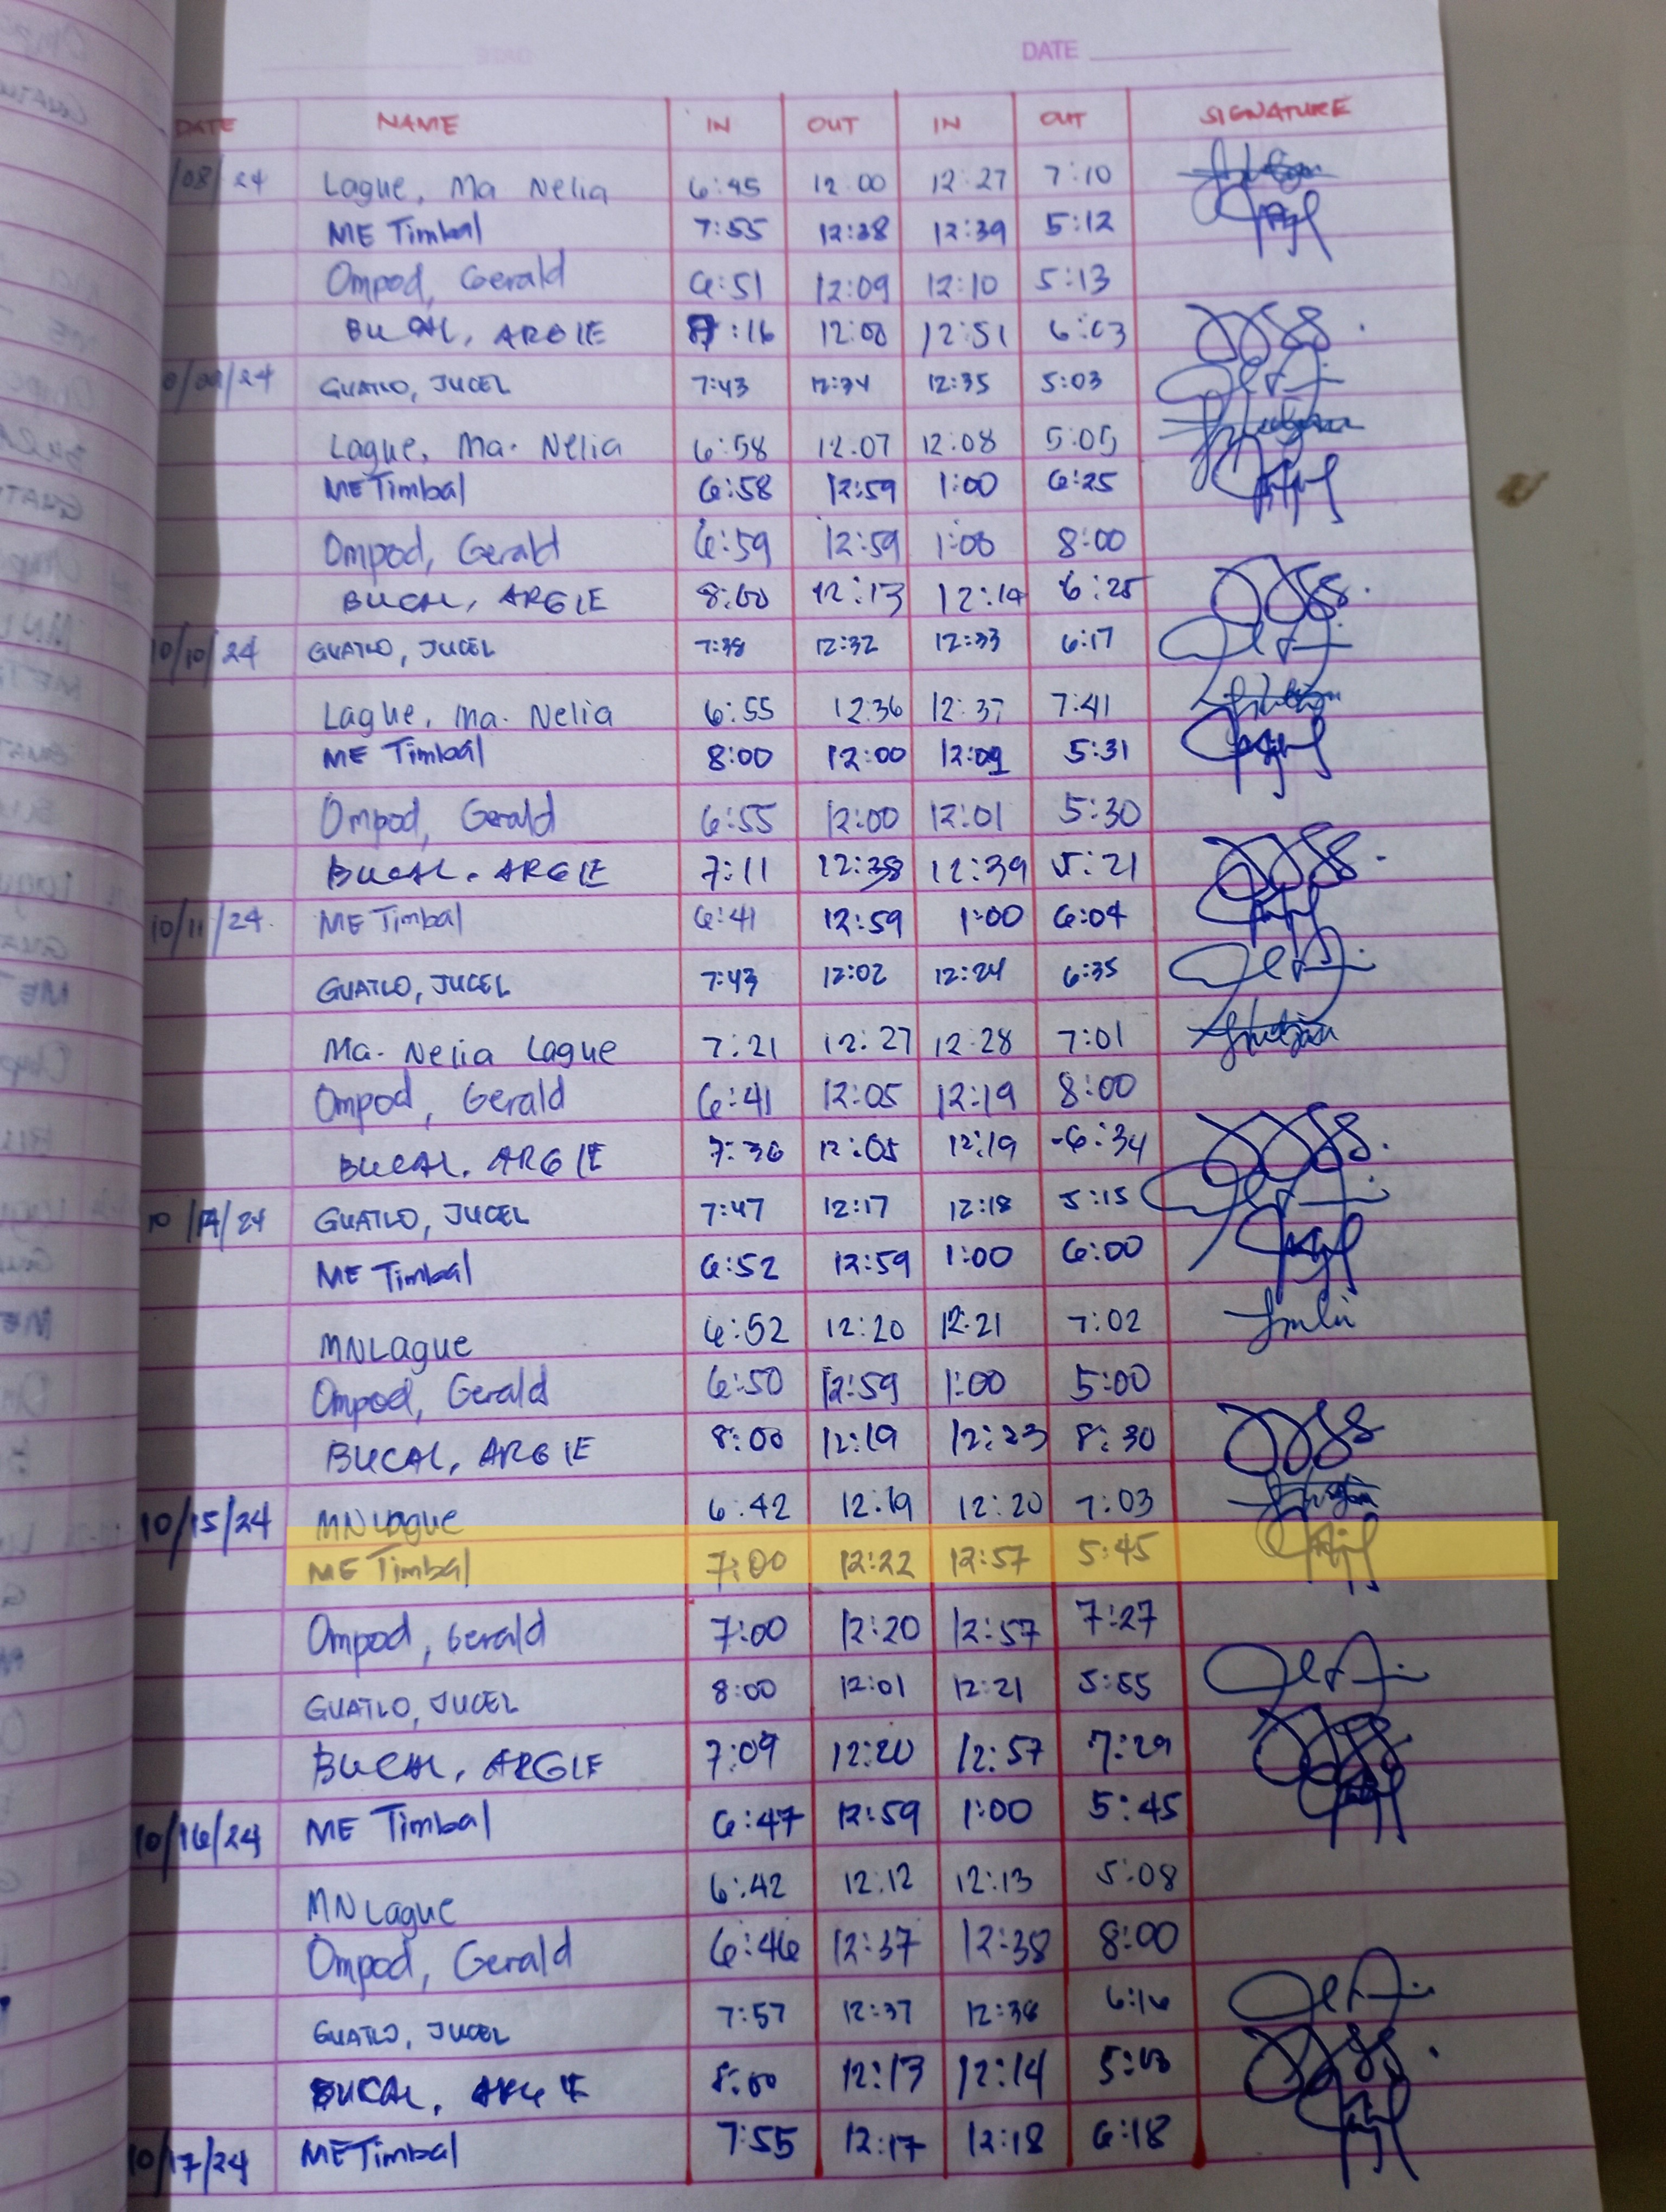 DATE
DATE NAME IN OUT IN OUT SIGNATURE
/08/24 Lague, Ma Nelia 6:45 12:00 12:27 7:10
ME Timbal 7:55 12:38 12:39 5:12
Ompod, Gerald 6:51 12:09 12:10 5:13
BUCAL, ARGIE :16 12:00 12:51 6:03
0/09/24 GUATLO, JUCEL 7:43 12:34 12:35 5:03
Lague, Ma. Nelia 6:58 12:07 12:08 5:05
ME Timbal 6:58 12:59 1:00 6:25
Ompod, Gerald 6:59 12:59 1:00 8:00
BUCAL, ARGIE 8:00 12:13 12:14 6:25
10/10/24 GUATLO, JUCEL 7:38 12:32 12:33 6:17
Lague, Ma. Nelia 6:55 12:36 12:37 7:41
ME Timbal 8:00 12:00 12:09 5:31
Ompod, Gerald 6:55 12:00 12:01 5:30
BUCAL, ARGIE 7:11 12:38 12:39 5:21
10/11/24 ME Timbal 6:41 12:59 1:00 6:04
GUATLO, JUCEL 7:43 12:02 12:24 6:35
Ma. Nelia Lague 7:21 12:27 12:28 7:01
Ompod, Gerald 6:41 12:05 12:19 8:00
BUCAL, ARGIE 7:36 12:05 12:19 6:34
10/14/24 GUATLO, JUCEL 7:47 12:17 12:18 5:15
ME Timbal 6:52 12:59 1:00 6:00
MNLague 6:52 12:20 12:21 7:02
Ompod, Gerald 6:50 12:59 1:00 5:00
BUCAL, ARGIE 8:00 12:19 12:23 8:30
10/15/24 MNLague 6:42 12:19 12:20 7:03
ME Timbal 7:00 12:22 12:57 5:45
Ompod, Gerald 7:00 12:20 12:57 7:27
GUATLO, JUCEL 8:00 12:01 12:21 5:55
BUCAL, ARGIE 7:09 12:20 12:57 7:29
10/16/24 ME Timbal 6:47 12:59 1:00 5:45
MNLague 6:42 12:12 12:13 5:08
Ompod, Gerald 6:46 12:37 12:38 8:00
GUATLO, JUCEL 7:57 12:37 12:38 6:16
BUCAL, ARGIE 8:00 12:13 12:14 5:13
10/17/24 ME Timbal 7:55 12:17 12:18 6:18